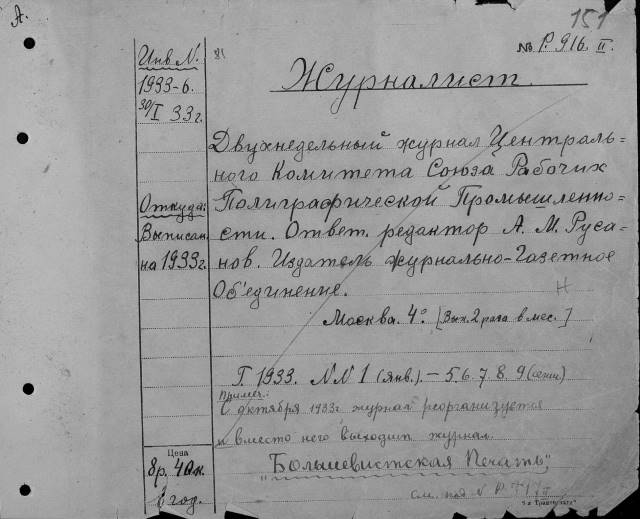 А.
151
№ Р. 916. II.
Инв N.
1933-6.
30/I 33 г.
81
Журналист
Двухнедельный журнал Централь=
ного Комитета Союза Рабочих
Полиграфической Промышленно=
сти. Ответ. редактор А. М. Руса=
нов. Издатель журнально-Газетное
Об'единение.
Откуда:
Выписан
на 1933 г.
Н
Москва. 4° [Вых. 2 раза в мес.]
Г. 1933. N N 1 (янв.) – 5. 6. 7. 8. 9 (сент)
Примеч.:
С октября 1933 г журнал реорганизуется
и вместо него выходит журнал
"Большевистская Печать"
см. под N Р.
Цена
8 р. 40 к.
в год.